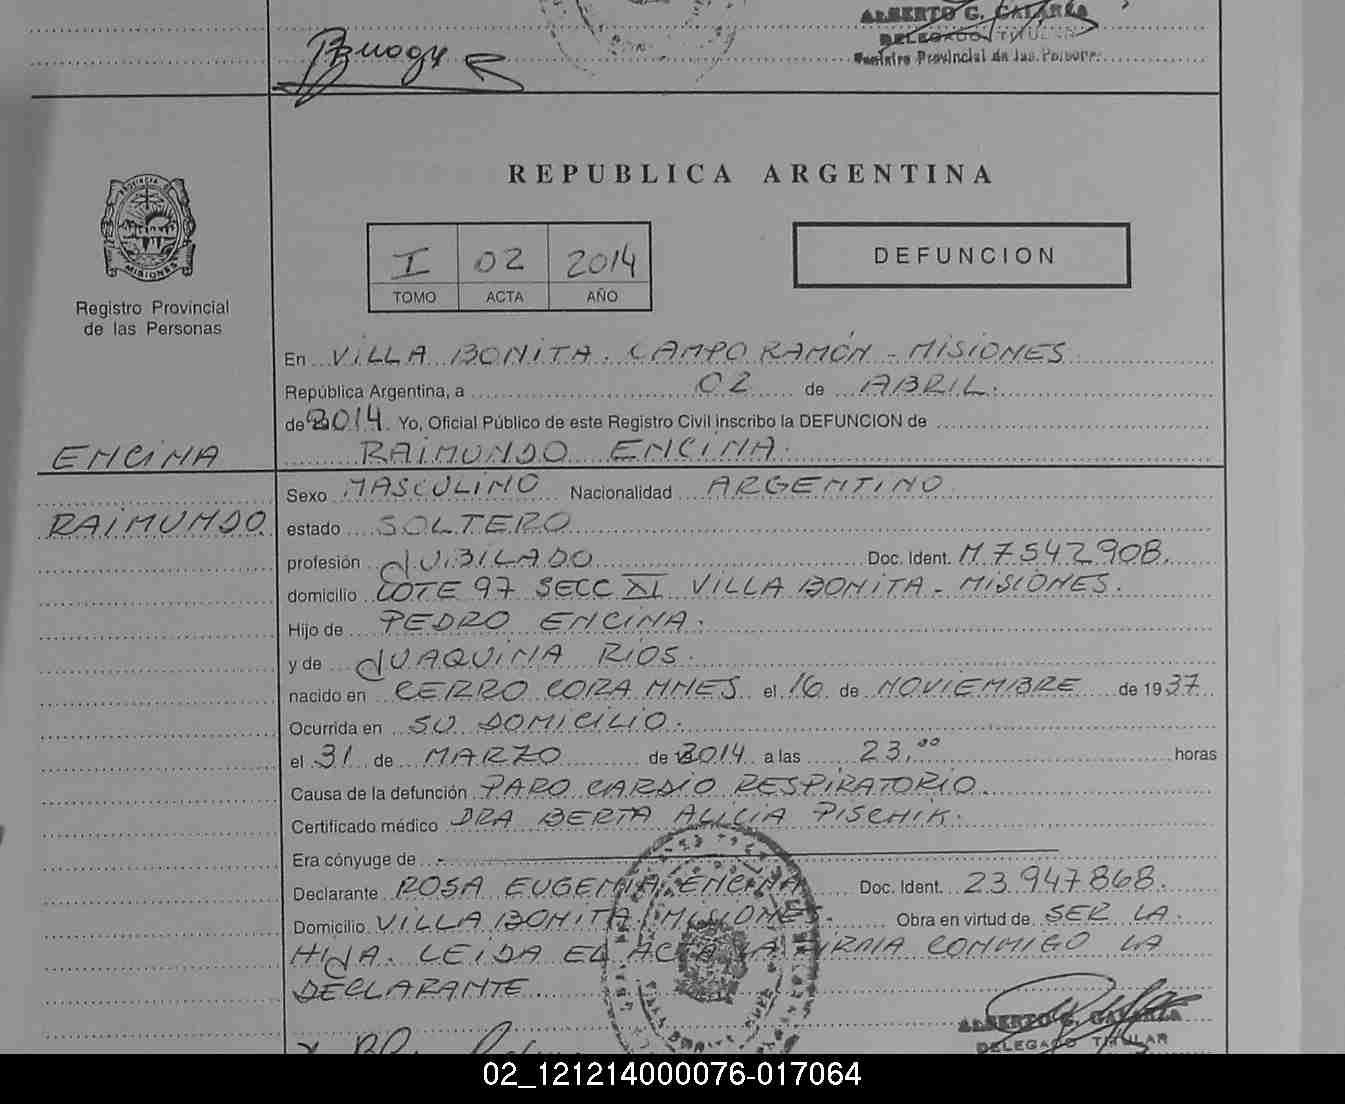 Bruogy
ALBERTO G. GALARZA
DELEGADO TITULAR
Registro Provincial de las Personas
REPUBLICA ARGENTINA
PROVINCIA DE
MISIONES
Registro Provincial
de las Personas
I 02 2014
TOMO ACTA AÑO
DEFUNCION
En VILLA BONITA. CAMPO RAMÓN - MISIONES
República Argentina, a 02 de ABRIL.
de 2014. Yo, Oficial Público de este Registro Civil inscribo la DEFUNCION de
ENCINA RAIMUNDO ENCINA.
Sexo MASCULINO Nacionalidad ARGENTINO
RAIMUNDO. estado SOLTERO
profesión JUBILADO Doc. Ident. M.7542908.
domicilio LOTE 97 SECC XI VILLA BONITA - MISIONES.
Hijo de PEDRO ENCINA.
y de JUAQUINA RIOS.
nacido en CERRO CORA MNES el 16 de NOVIEMBRE de 1937
Ocurrida en SU DOMICILIO.
el 31 de MARZO de 2014 a las 23,00 horas
Causa de la defunción PARO CARDIO RESPIRATORIO.
Certificado médico DRA BERTA ALICIA PISCHIK.
Era cónyuge de -
Declarante ROSA EUGENIA ENCINA Doc. Ident. 23.947.868.
Domicilio VILLA BONITA MISIONES. Obra en virtud de SER LA
HIJA. LEIDA EL ACTA LA FIRMA CONMIGO LA
DECLARANTE
ALBERTO G. GALARZA
DELEGADO TITULAR
02_121214000076-017064